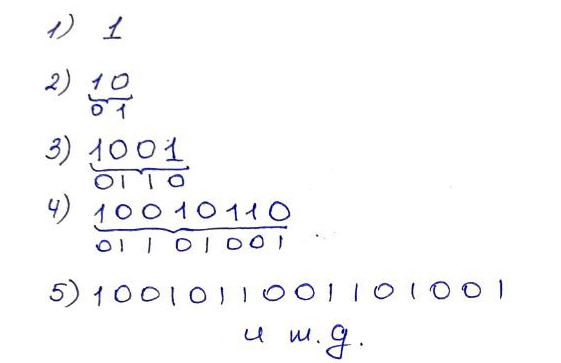 1) 1
2) 10
01
3) 1001
0110
4) 10010110
01101001
5) 1001011001101001
и т.д.